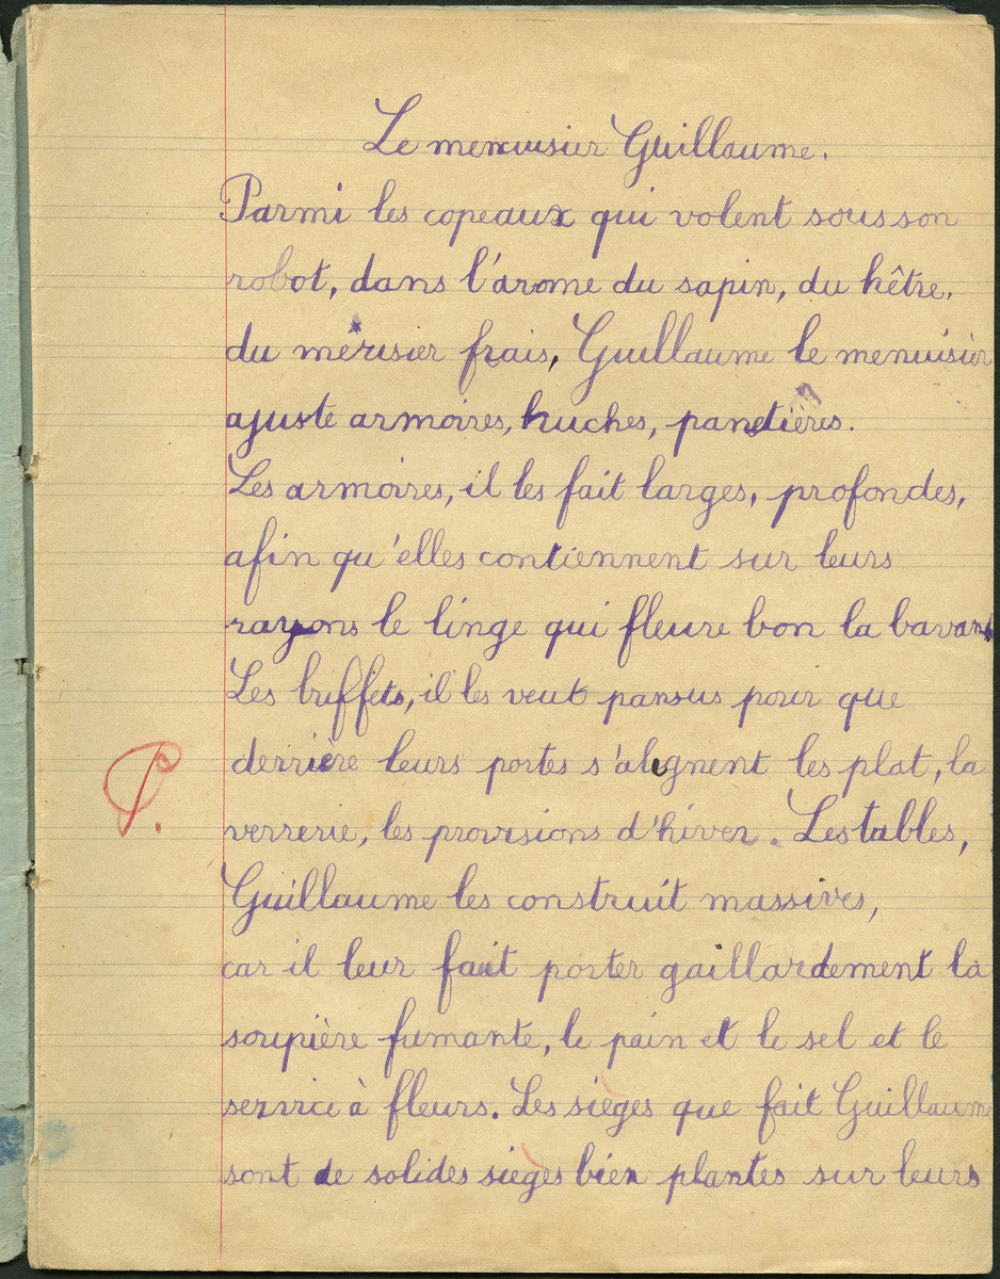 Le menuisier Guillaume.
Parmi les copeaux qui volent sous son
robot, dans l'arome du sapin, du hêtre,
du mérisier frais, Guillaume le menuisier
ajuste armoires, huches, panetières.
Les armoires, il les fait larges, profondes,
afin qu'elles contiennent sur leurs
rayons le linge qui fleure bon la bavant
Les buffets, il les veut pansus pour que
derrière leurs portes s'alignent les plat, la
verrerie, les provisions d'hiver. Les tables,
Guillaume les construit massives,
car il leur faut porter gaillardement la
soupière fumante, le pain et le sel et le
service à fleurs. Les sièges que fait Guillaume
P.
sont de solides sièges bien plantes sur leurs